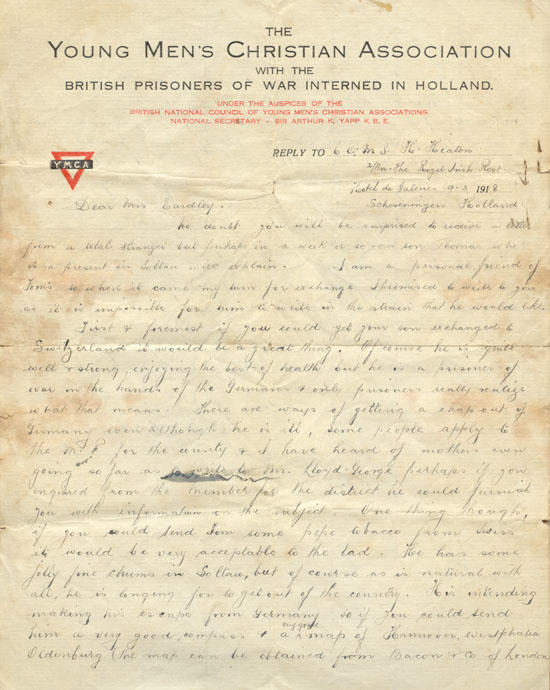 THE
YOUNG MEN'S CHRISTIAN ASSOCIATION
WITH THE
BRITISH PRISONERS OF WAR INTERNED IN HOLLAND.
UNDER THE AUSPICES OF THE
BRITISH NATIONAL COUNCIL OF YOUNG MEN'S CHRISTIAN ASSOCIATIONS.
NATIONAL SECRETARY - SIR ARTHUR K. YAPP K.B.E.
REPLY TO C.Q.M.S. H. Heaton
2/Bn. The Royal Irish Regt
Y.M.C.A
Hotel de Galeries 9-3 1918
Dear Mrs Eardley. Scheveningen Holland
No doubt you will be surprised to receive a letter
from a total stranger but perhaps in a week or so your son Thomas who
is at present in Soltau will explain. I am a personal friend of
Tom's so when it came my turn for exchange I promised to write to you
as it is impossible for him to write in the strain that he would like.
First & foremost if you could get your son exchanged to
Switzerland it would be a great thing. Of course he is quite
well & strong, enjoying the best of health but he is a prisoner of
war in the hands of the Germans & only prisoners really realize
what that means. There are ways of getting a chap out of
Germany even although he is ill, some people apply to
the M.P. for the county & I have heard of mothers even
going so far as to write to Mr. Lloyd George perhaps if you
enquired from the Member for the district he could furnish
you with information on the subject. One thing though,
if you could send Tom some pipe tobacco from Swiss
it would be very acceptable to the lad. He has some
jolly fine chums in Soltau, but of course as is natural with
all, he is longing for to get out of the country. He is intending
making his escape from Germany so if you could send
him a very good compass & a map of Hannover, Westphalia
Oldenburg (the map can be obtained from Bacon & Co of London